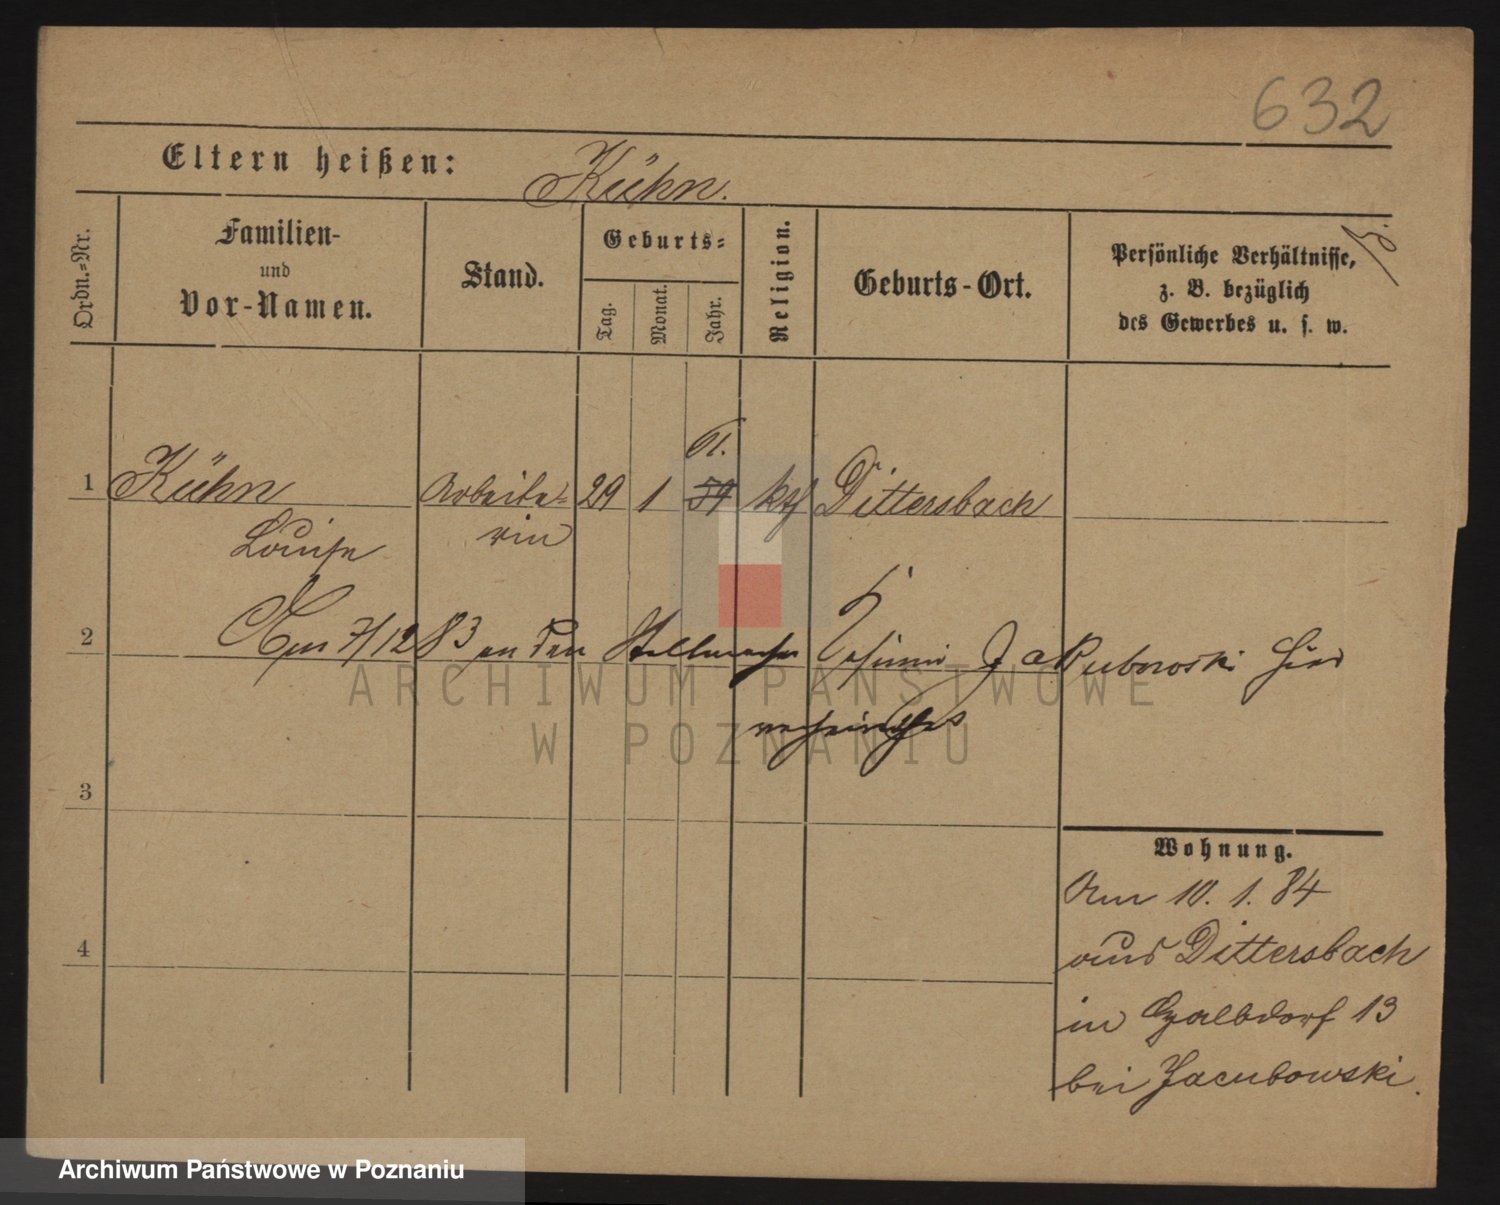 632
Eltern heißen: Kühn.
Ordn.-Nr.
Familien-
und
Vor-Namen.
Stand.
Geburts-
Tag.
Monat.
Jahr.
Religion.
Geburts-Ort.
Persönliche Verhältnisse,
z. B. bezüglich
des Gewerbes u. s. w.
61.
1 Kühn Arbeite= 29 1 59 kth Dittersbach
Louise rin
2 Am 7/12 83 an den Stellmacher Casimir Jakubowski hier
verheirathet
3
4
Wohnung.
Am 10. 1. 84
aus Dittersbach
in Halbdorf 13
bei Jacubowski.
ARCHIWUM PAŃSTWOWE
W POZNANIU
Archiwum Państwowe w Poznaniu